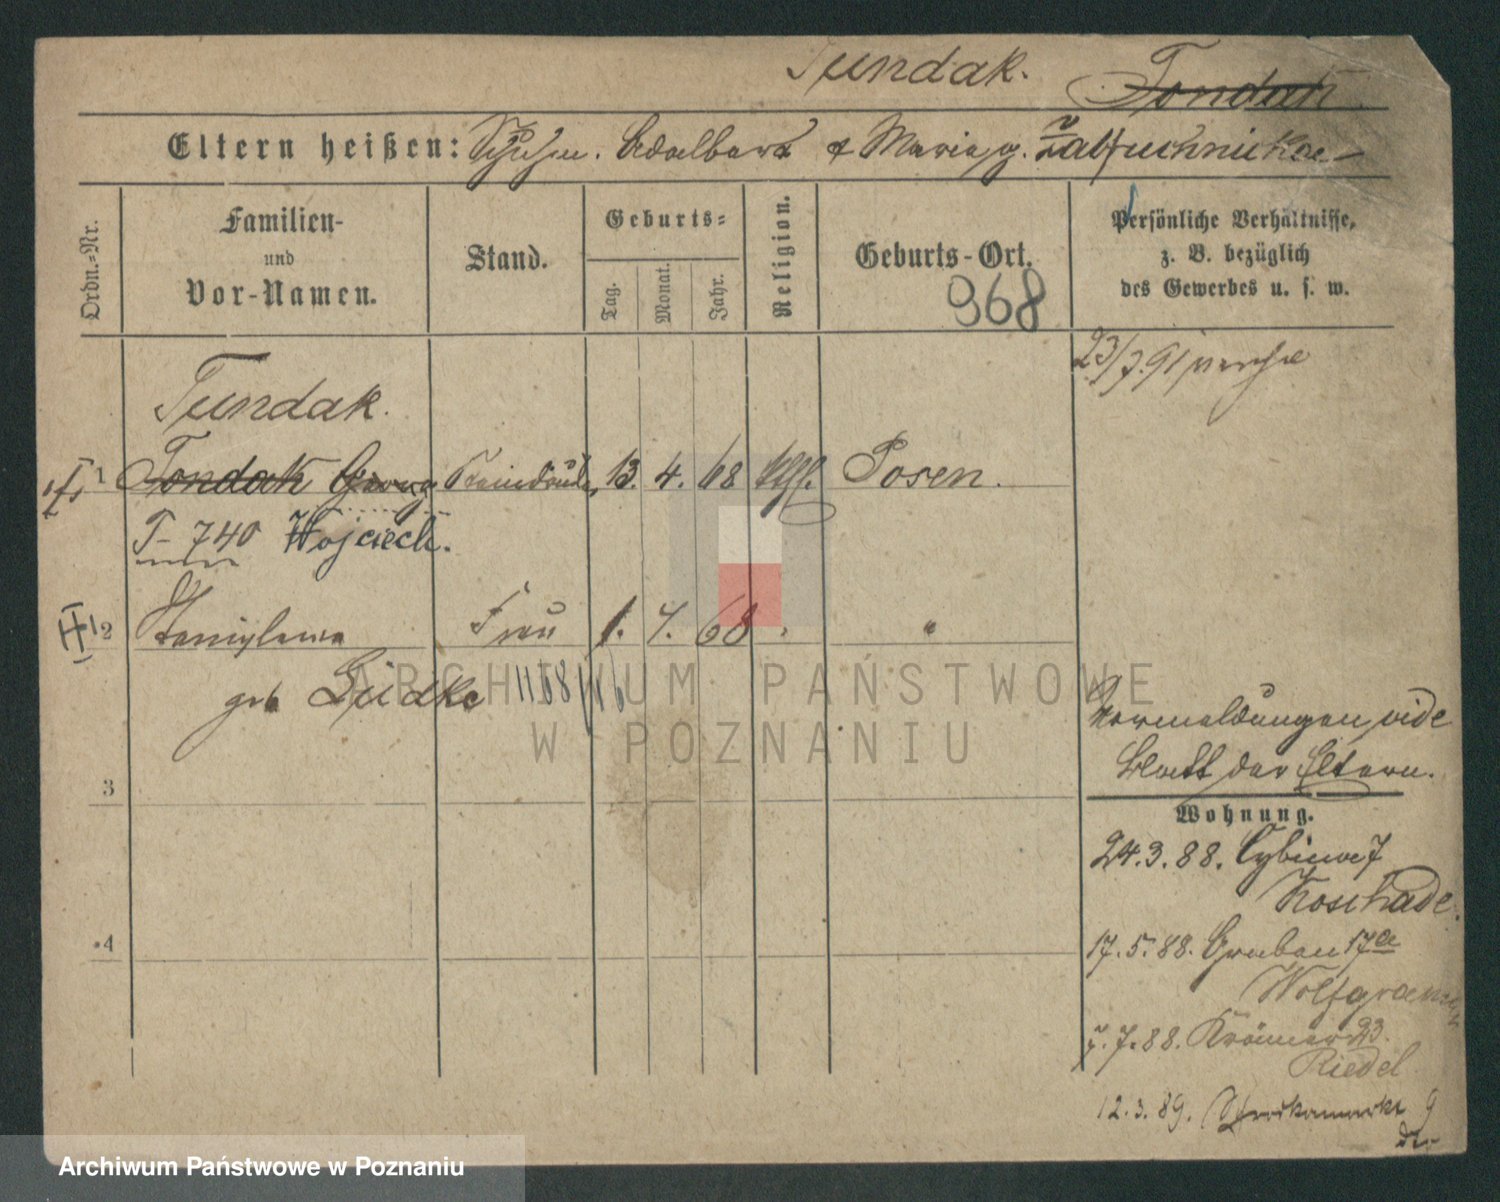 Tundak. Tondak.
Eltern heißen: Adalbert & Maria g.
Ordn.-Nr.
Familien-
und
Vor-Namen.
Stand.
Geburts-
Tag.
Monat.
Jahr.
Religion.
Geburts-Ort.
968
Persönliche Verhältnisse,
z. B. bezüglich
des Gewerbes u. s. w.
23/7.91
Tundak.
1 Tondak Georg 13. 4. 68 kgl. Posen.
T-740 Wojciech.
2 Frau 1. 4. 68 "
geb
3
4
vide
Blatt der Eltern.
Wohnung.
24.3.88. Cybina 7
Koschade.
17.5.88. Graben 17a
7.7.88. Krämer 23.
Riedel.
12.3.89. 9
ARCHIWUM PAŃSTWOWE
W POZNANIU
Archiwum Państwowe w Poznaniu